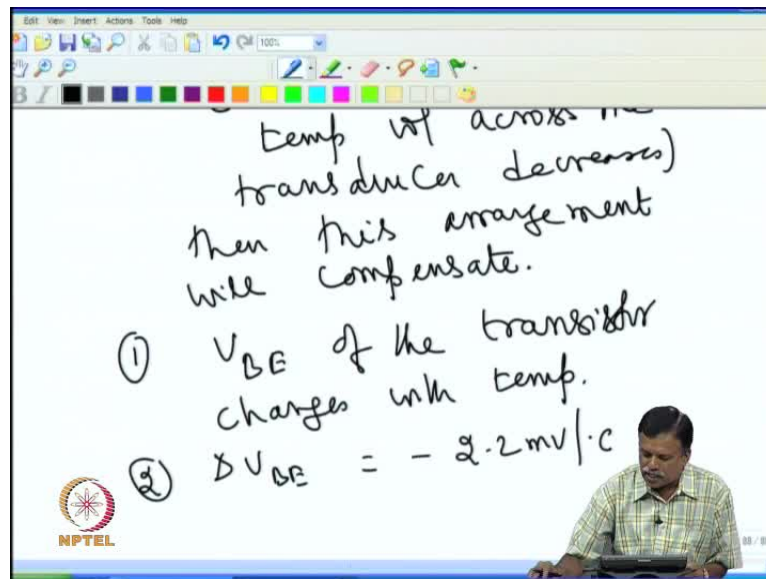 Edit View Insert Actions Tools Help
100%
B I
temp vol across the
transducer decreases)
then this arrangement
will compensate.
① VBE of the transistor
changes with temp.
② ΔVBE = - 2.2 mV/°C
NPTEL